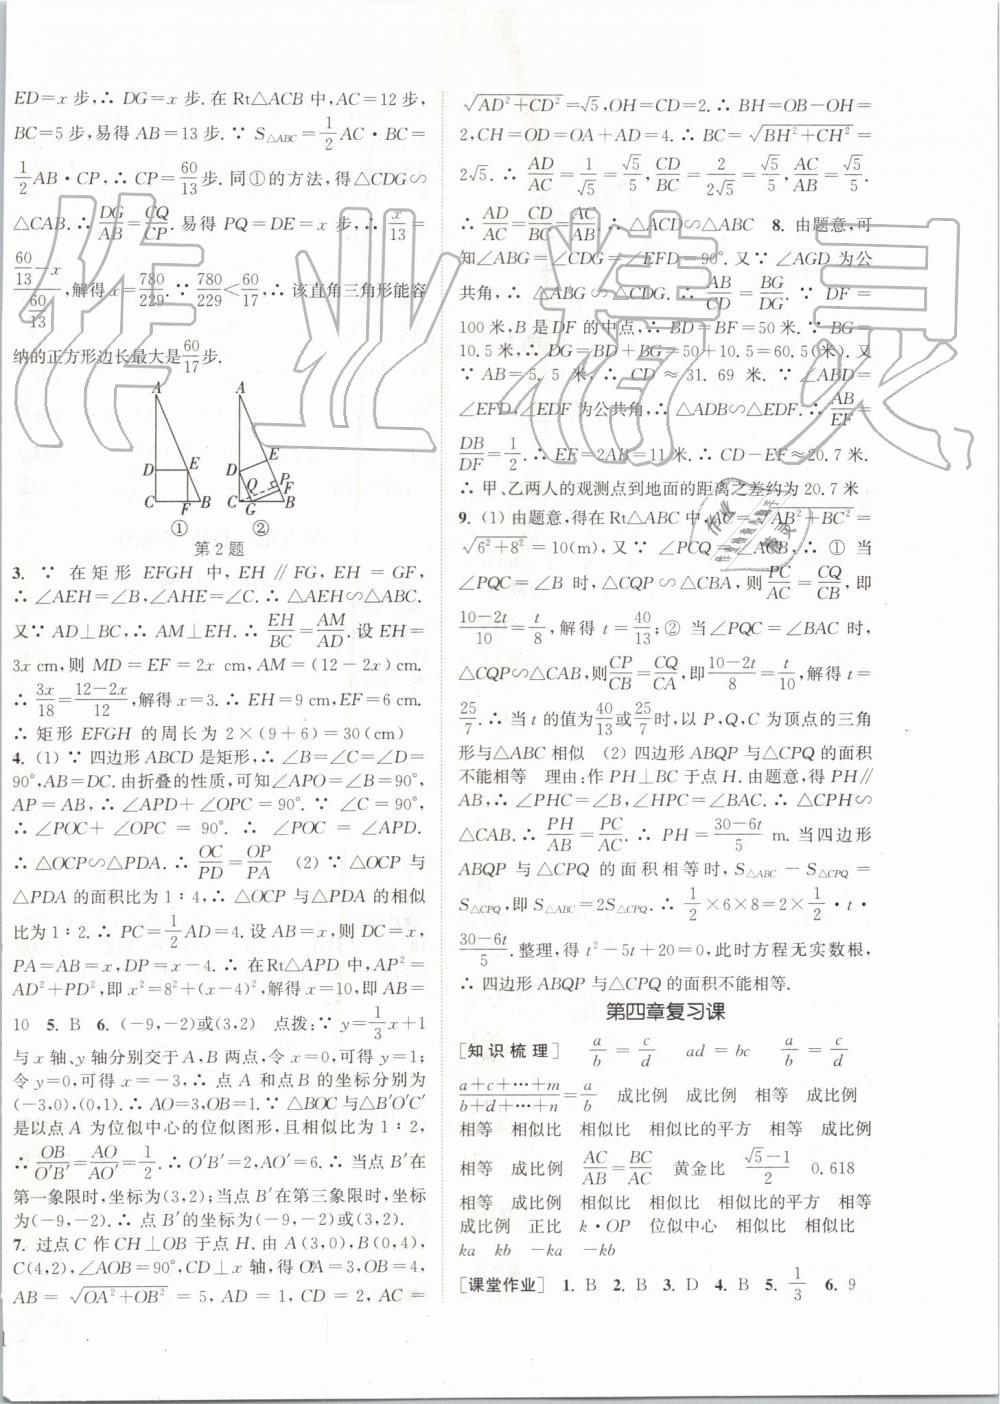 ED=x 步,∴ DG=x 步. 在 Rt△ACB 中, AC=12 步,
BC=5 步,易得 AB=13 步. ∵ S△ABC=1/2 AC·BC=
1/2 AB·CP,∴ CP=60/13步. 同①的方法,得△CDG∽
△CAB. ∴ DG/AB=CQ/CP. 易得 PQ=DE=x 步,∴ x/13=
(60/13-x)/(60/13),解得 x=780/229. ∵ 780/229<60/17,∴ 该直角三角形能容
纳的正方形边长最大是60/17步.
A
D E
C F B
①
A
E
D
Q P
F
C G B
②
第 2 题
3. ∵ 在矩形 EFGH 中, EH∥FG, EH=GF,
∴ ∠AEH=∠B,∠AHE=∠C. ∴ △AEH∽△ABC.
又∵ AD⊥BC,∴ AM⊥EH. ∴ EH/BC=AM/AD. 设 EH=
3x cm,则 MD=EF=2x cm, AM=(12-2x)cm.
∴ 3x/18=(12-2x)/12,解得 x=3. ∴ EH=9 cm,EF=6 cm.
∴ 矩形 EFGH 的周长为 2×(9+6)=30(cm)
4. (1) ∵ 四边形 ABCD 是矩形,∴ ∠B=∠C=∠D=
90°,AB=DC. 由折叠的性质,可知∠APO=∠B=90°,
AP=AB,∴ ∠APD+∠OPC=90°. ∵ ∠C=90°,
∴ ∠POC+∠OPC=90°. ∴ ∠POC=∠APD.
∴ △OCP∽△PDA. ∴ OC/PD=OP/PA (2) ∵ △OCP 与
△PDA 的面积比为 1∶4,∴ △OCP 与△PDA 的相似
比为 1∶2. ∴ PC=1/2AD=4. 设 AB=x,则 DC=x,
PA=AB=x,DP=x-4. ∴ 在Rt△APD 中,AP²=
AD²+PD²,即 x²=8²+(x-4)²,解得 x=10,即 AB=
10 5. B 6. (-9,-2)或(3,2) 点拨:∵ y=1/3x+1
与 x 轴、y 轴分别交于 A、B 两点,令 x=0,可得 y=1;
令 y=0,可得 x=-3,∴ 点 A 和点 B 的坐标分别为
(-3,0),(0,1). ∴ AO=3,OB=1. ∵ △BOC 与△B'O'C'
是以点 A 为位似中心的位似图形,且相似比为 1∶2,
∴ OB/O'B'=AO/AO'=1/2. ∴ O'B'=2,AO'=6. ∴ 当点 B'在
第一象限时,坐标为(3,2);当点 B'在第三象限时,坐标
为(-9,-2). ∴ 点 B'的坐标为(-9,-2)或(3,2).
7. 过点 C 作 CH⊥OB 于点 H. 由 A(3,0),B(0,4),
C(4,2),∠AOB=90°,CH⊥y 轴,得 OA=3,OB=4,
AB=√(OA²+OB²)=5, AD=1, CD=2, AC=
√(AD²+CD²)=√5,OH=CD=2. ∴ BH=OB-OH=
2,CH=OD=OA+AD=4. ∴ BC=√(BH²+CH²)=
2√5. ∴ AD/AC=1/√5=√5/5,CD/BC=2/(2√5)=√5/5,AC/AB=√5/5.
∴ AD/AC=CD/BC=AC/AB. ∴ △ACD∽△ABC 8. 由题意,可
知∠ABG=∠CDG=∠EFD=90°. 又∵ ∠AGD 为公
共角,∴ △ABG∽△CDG. ∴ AB/CD=BG/DG. ∵ DF=
100 米,B 是 DF 的中点,∴ BD=BF=50 米. ∵ BG=
10.5 米,∴ DG=BD+BG=50+10.5=60.5(米). 又
∵ AB=5.5 米,∴ CD≈31.69 米. ∵ ∠ABD=
∠EFD,∠EDF 为公共角,∴ △ADB∽△EDF. ∴ AB/EF=
DB/DF=1/2. ∴ EF=2AB=11 米. ∴ CD-EF≈20.7 米.
∴ 甲、乙两人的观测点到地面的距离之差约为 20.7 米
9. (1) 由题意,得在Rt△ABC 中,AC=√(AB²+BC²)=
√(6²+8²)=10(m),又∵ ∠PCQ=∠ACB,∴ ① 当
∠PQC=∠B 时,△CPQ∽△CBA,则PC/AC=CQ/CB,即
(10-2t)/10=t/8,解得 t=40/13;② 当∠PQC=∠BAC 时,
△CPQ∽△CAB,则CP/CB=CQ/CA,即(10-2t)/8=t/10,解得 t=
25/7. ∴ 当 t 的值为40/13或25/7时,以 P,Q,C 为顶点的三角
形与△ABC 相似 (2) 四边形 ABQP 与△CPQ 的面积
不能相等 理由:作 PH⊥BC 于点 H. 由题意,得 PH∥
AB,∴ ∠PHC=∠B,∠HPC=∠BAC. ∴ △CPH∽
△CAB. ∴ PH/AB=PC/AC. ∴ PH=(30-6t)/5 m. 当四边形
ABQP 与△CPQ 的面积相等时, S△ABC-S△CPQ=
S△CPQ,即 S△ABC=2S△CPQ. ∴ 1/2×6×8=2×1/2·t·
(30-6t)/5. 整理,得 t²-5t+20=0,此时方程无实数根,
∴ 四边形 ABQP 与△CPQ 的面积不能相等.
第四章复习课
[知识梳理] a/b=c/d ad=bc a/b=c/d
(a+c+…+m)/(b+d+…+n)=a/b 成比例 成比例 相等 成比例
相等 相似比 相似比 相似比的平方 相等 成比例
相等 成比例 AC/AB=BC/AC 黄金比 (√5-1)/2 0.618
相等 成比例 相似比 相似比 相似比的平方 相等
成比例 正比 k·OP 位似中心 相似比 相似比
ka kb -ka -kb
[课堂作业] 1. B 2. B 3. D 4. B 5. 1/3 6. 9
作业精灵
作业精灵